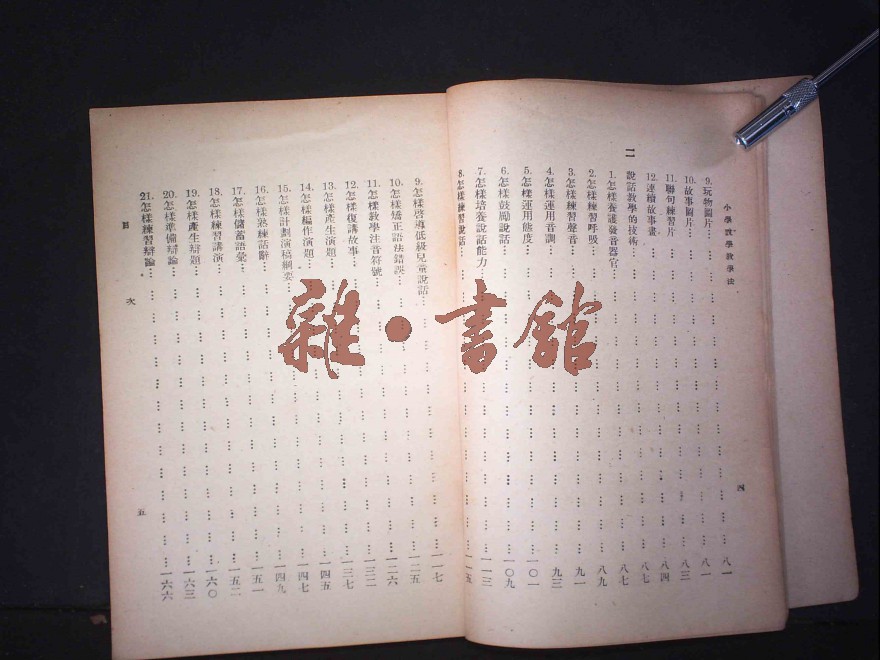 小學說學教學法
四
9. 玩物圖片……八一
10. 故事圖片……八三
11. 聯句練習片……八四
12. 連續故事畫……八七
二 說話教學的技術……八七
1. 怎樣養護發音器官……八七
2. 怎樣練習呼吸……八九
3. 怎樣練習聲音
4. 怎樣運用音調……九三
5. 怎樣運用態度……一〇一
6. 怎樣鼓勵說話……一〇九
7. 怎樣培養說話能力……一一三
8. 怎樣練習說話……一一五
9. 怎樣啓導低級兒童說話……一一七
10. 怎樣矯正語法錯誤……一二六
11. 怎樣教學注音符號……一三二
12. 怎樣復講故事……一三七
13. 怎樣產生演題……一四五
14. 怎樣編作演題……一四七
15. 怎樣計劃演稿綱要……一四九
16. 怎樣熟練話辭……一五一
17. 怎樣儲蓄語彙……一五二
18. 怎樣練習講演……一六〇
19. 怎樣產生辯題……一六三
20. 怎樣準備辯論……一六六
21. 怎樣練習辯論
目次
五
雜·書館